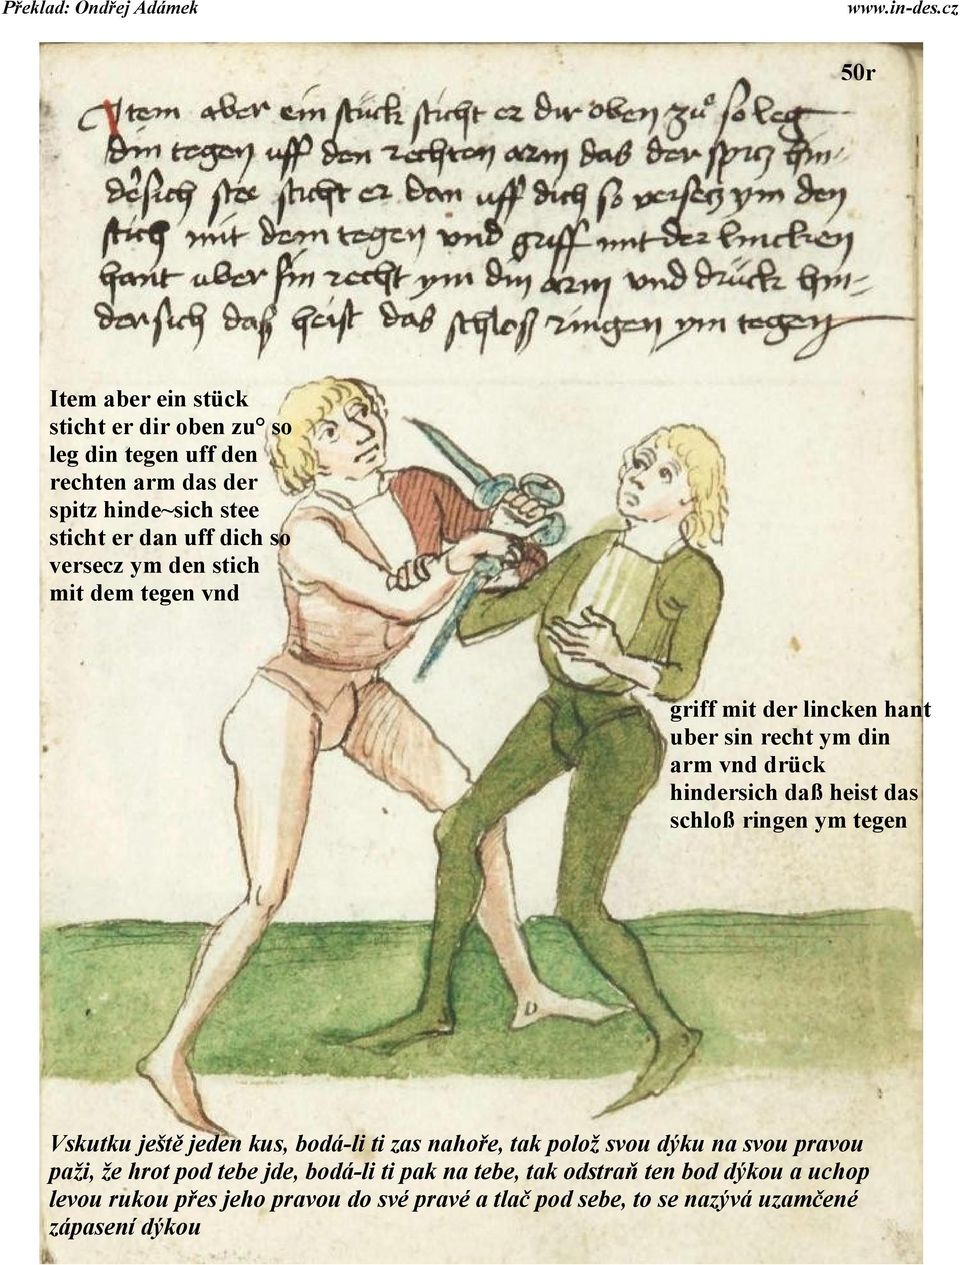 Překlad: Ondřej Adámek
www.in-des.cz
50r
Item aber ein stück sticht er dir oben zuͦ so leg
din tegen uff den rechten arm das der spitz hin-
desich stee sticht er dan uff dich so versecz ym den
stich mit dem tegen vnd griff mit der lincken
hant uber sin recht ym din arm vnd drück hin=
dersich daß heist das schloß ringen ym tegen
Item aber ein stück
sticht er dir oben zu° so
leg din tegen uff den
rechten arm das der
spitz hinde~sich stee
sticht er dan uff dich so
versecz ym den stich
mit dem tegen vnd
griff mit der lincken hant
uber sin recht ym din
arm vnd drück
hindersich daß heist das
schloß ringen ym tegen
Vskutku ještě jeden kus, bodá-li ti zas nahoře, tak polož svou dýku na svou pravou
paži, že hrot pod tebe jde, bodá-li ti pak na tebe, tak odstraň ten bod dýkou a uchop
levou rukou přes jeho pravou do své pravé a tlač pod sebe, to se nazývá uzamčené
zápasení dýkou